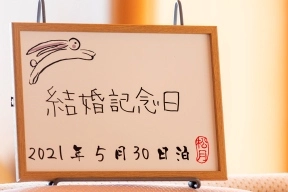 結婚記念日
2021年5月30日泊
松月